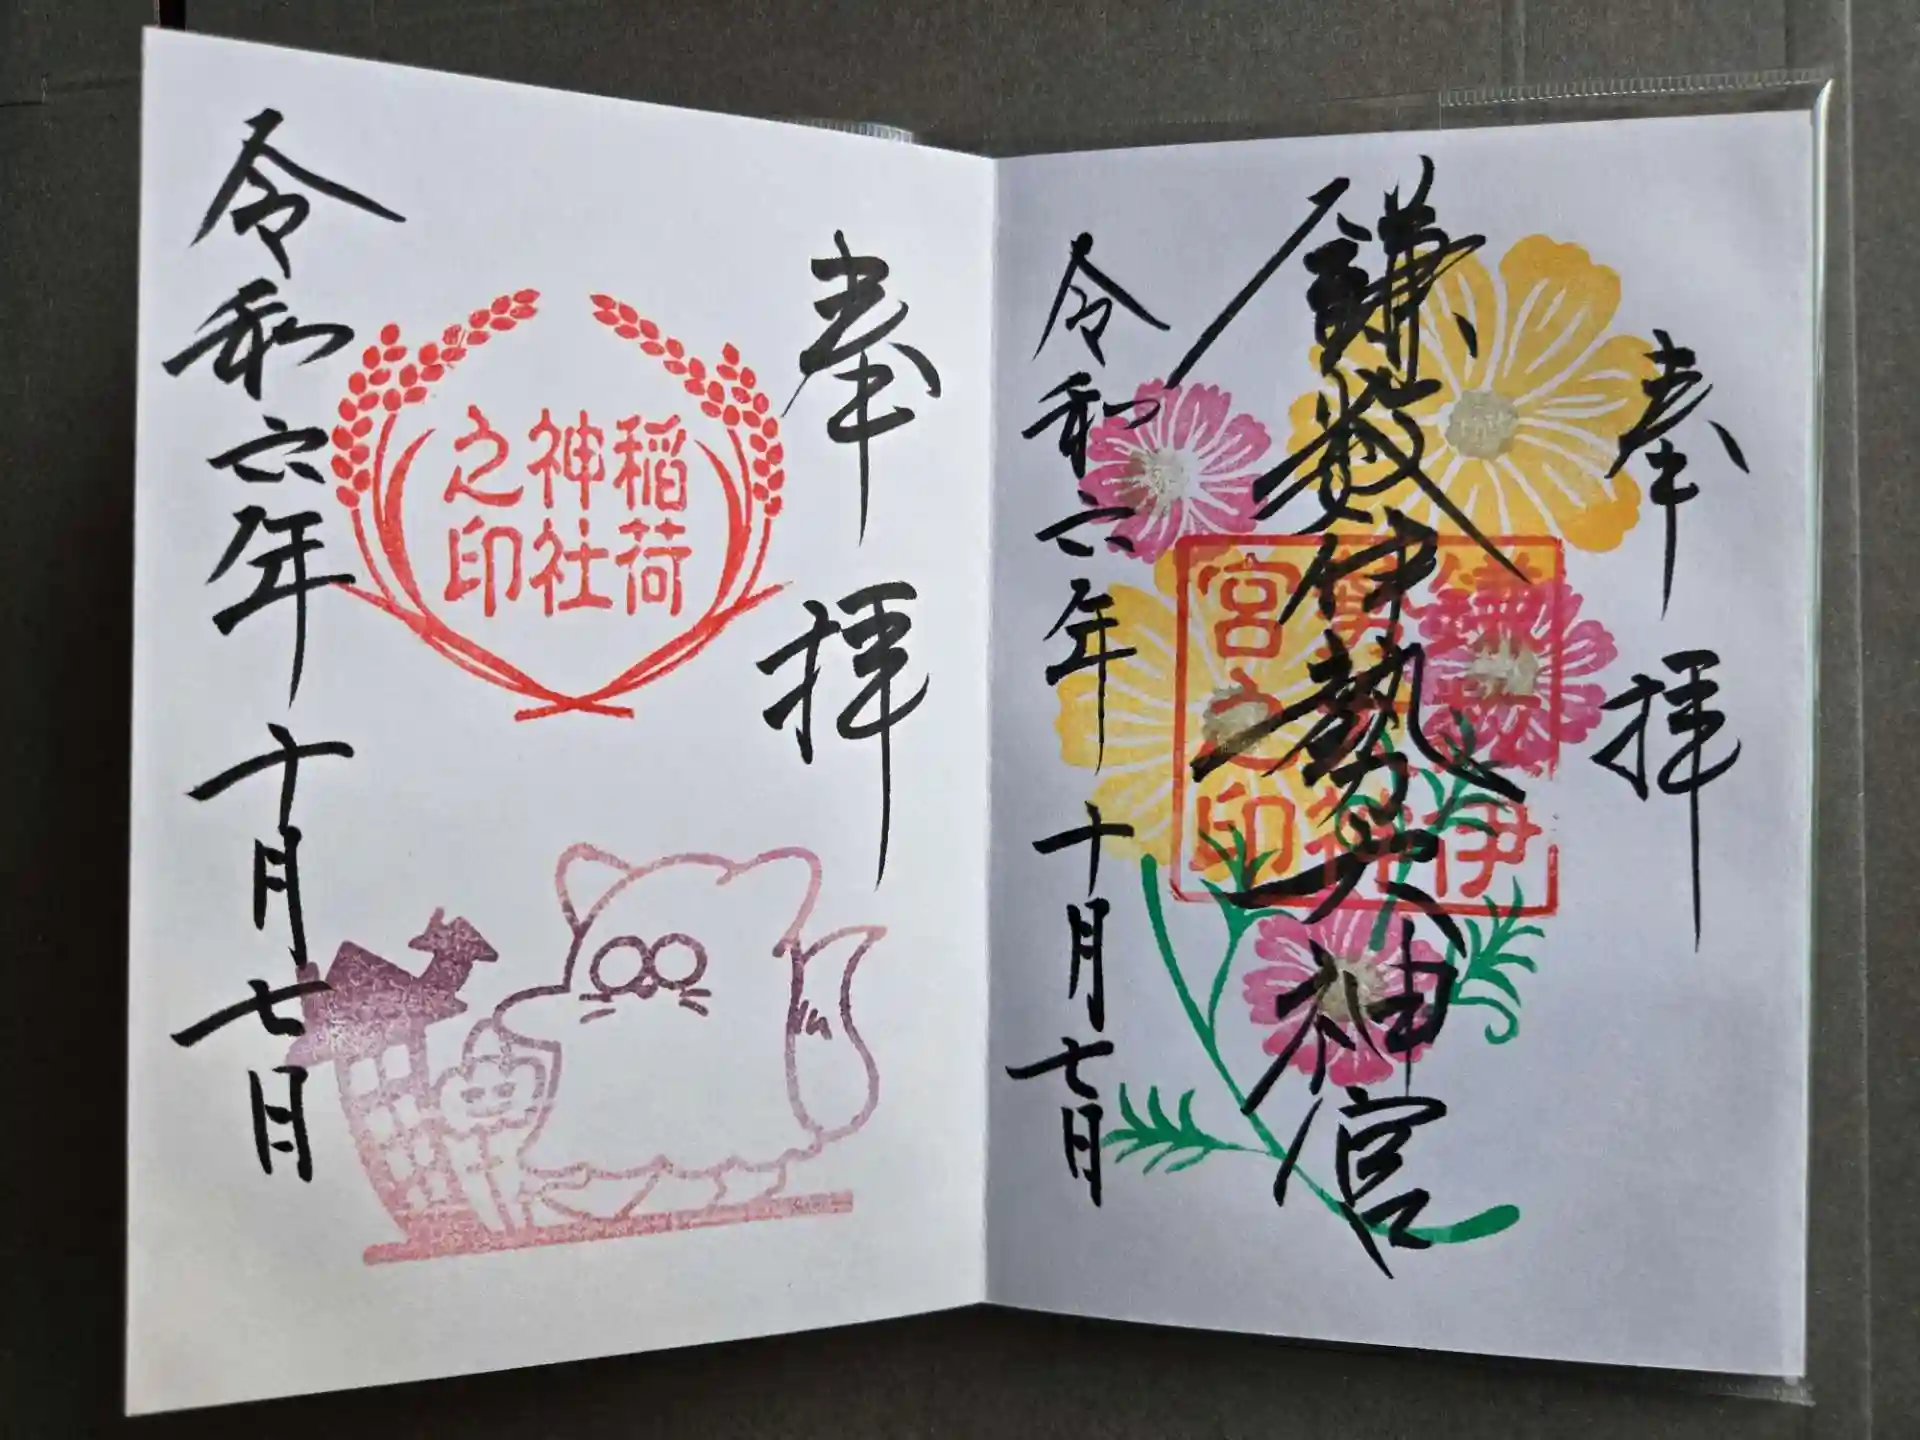 奉拝
鎌数伊勢大神宮
鎌数伊
勢大神
宮之印
令和六年十月七日
奉拝
稲荷
神社
之印
令和六年十月七日